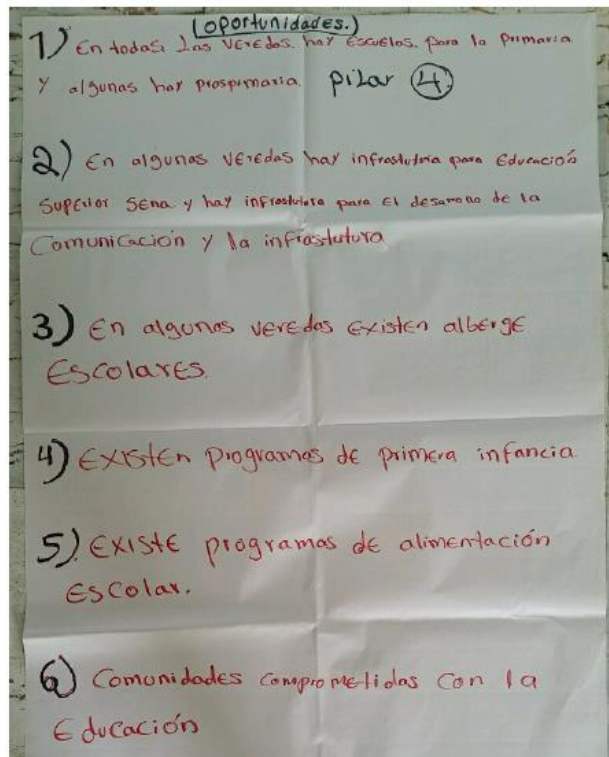 (oportunidades.)
1) En todas las veredas. hay Escuelas. para la primaria
y algunas hay prosprimaria. pilar 4
2) En algunas veredas hay infrastutura para Educación
Superior Sena y hay infrastutura para El desarrollo de la
Comunicación y la infrastutura
3) En algunas veredas Existen alberge
Escolares.
4) Existen programas de primera infancia
5) Existe programas de alimentación
Escolar.
6) Comunidades comprometidas con la
Educación